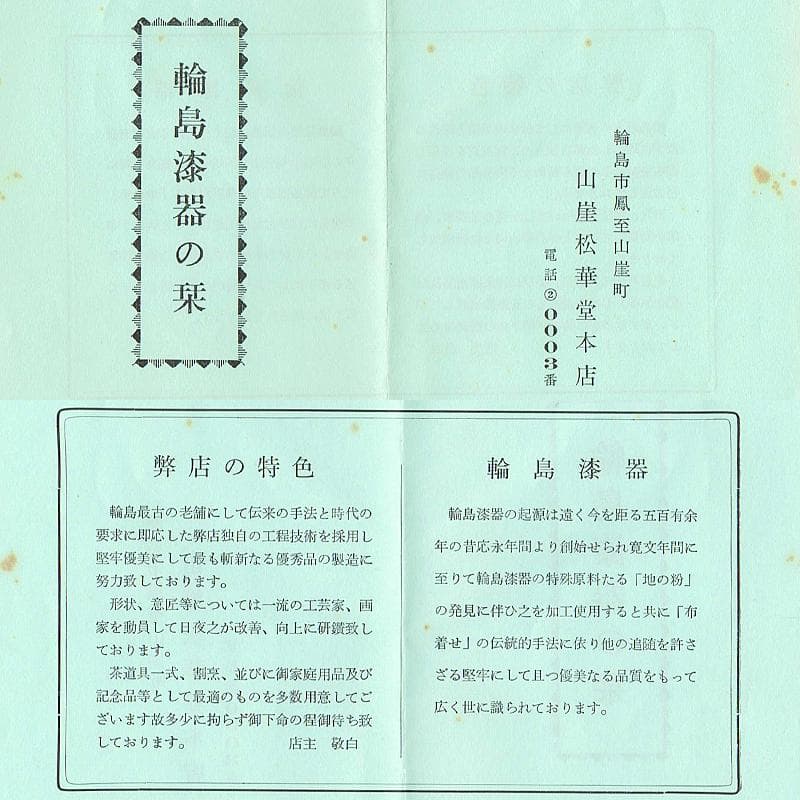 輪島漆器の栞
輪島市鳳至山崖町
山崖松華堂本店
電話②0003番
弊店の特色
輪島最古の老舗にして伝来の手法と時代の
要求に即応した弊店独自の工程技術を採用し
堅牢優美にして最も斬新なる優秀品の製造に
努力致しております。
形状、意匠等については一流の工芸家、画
家を動員して日夜之が改善、向上に研鑽致し
ております。
茶道具一式、割烹、並びに御家庭用品及び
記念品等として最適のものを多数用意してご
ざいます故多少に拘らず御下命の程御待ち致
しております。 店主 敬白
輪島漆器
輪島漆器の起源は遠く今を距る五百有余
年の昔応永年間より創始せられ寛文年間に
至りて輪島漆器の特殊原料たる「地の粉」
の発見に伴ひ之を加工使用すると共に「布
着せ」の伝統的手法に依り他の追随を許さ
ざる堅牢にして且つ優美なる品質をもって
広く世に識られております。